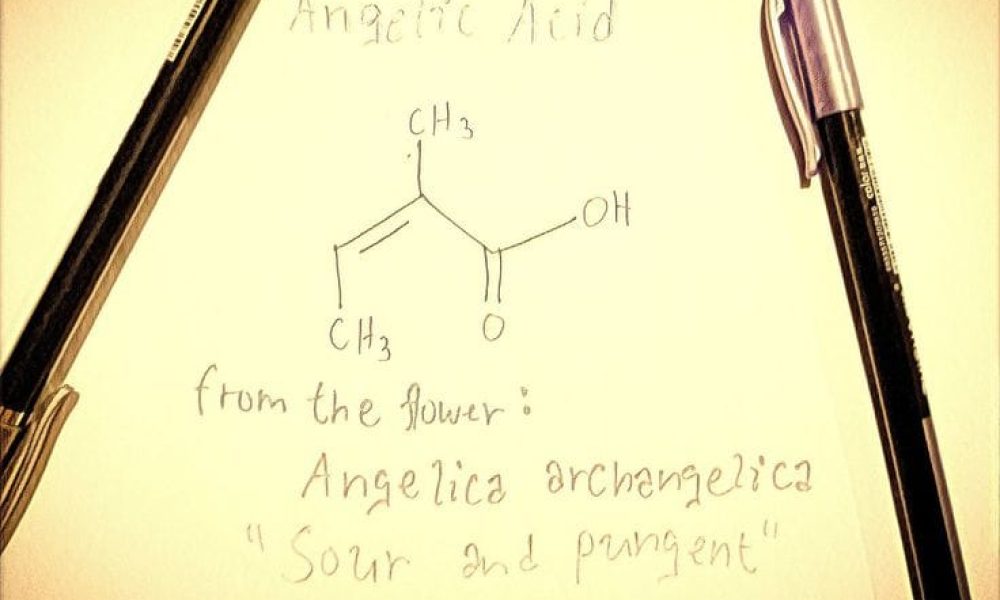 Angelic Acid
CH3
OH
CH3
O
from the flower:
Angelica archangelica
"Sour and pungent"